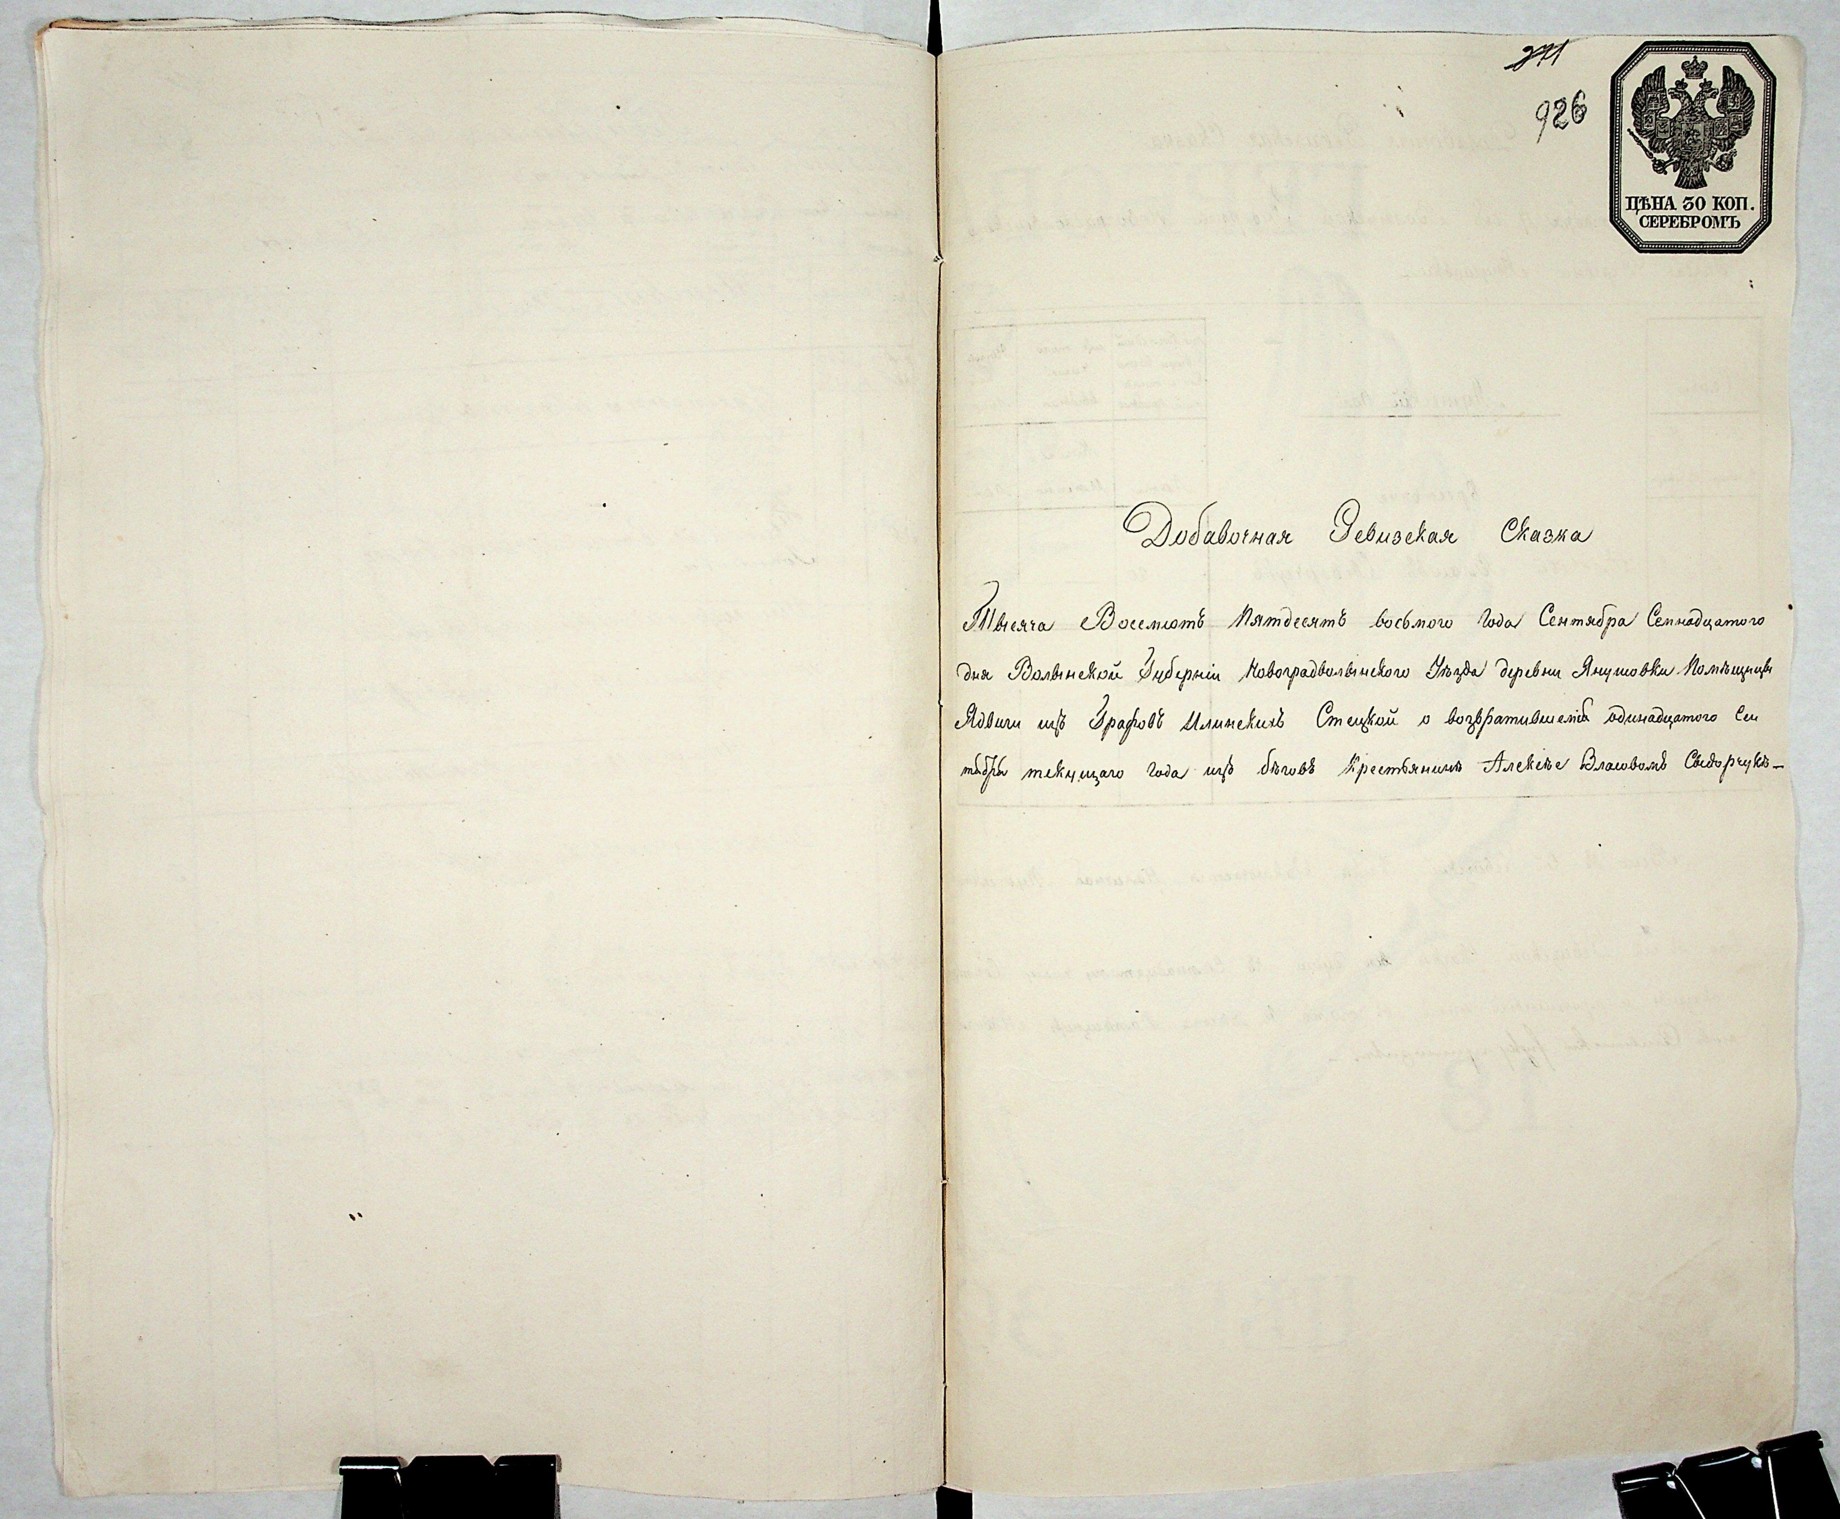 271
926
ЦѢНА 30 КОП.
СЕРЕБРОМЪ
Добавочная Ревизская Сказка
Тысяча Восемсотъ Пятдесятъ восьмого года Сентября Семнадцатого
дня Волынской Губерніи Новоградволынского Уѣзда деревни Янушовки Помѣщицы
Ядвиги изъ Графовъ Илинскихъ Стецкой о возвратившемся одинадцатого Сен
тября текущаго года изъ бѣговъ Крестьянинѣ Алексѣе Власовомъ Сыдорчукѣ